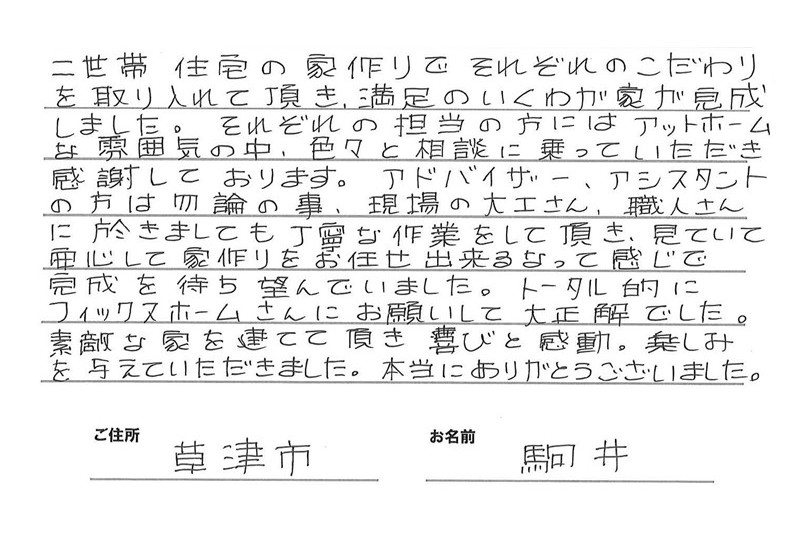 二世帯住宅の家作りでそれぞれのこだわり
を取り入れて頂き、満足のいくわが家が完成
しました。それぞれの担当の方にはアットホーム
な雰囲気の中、色々と相談に乗っていただき
感謝しております。アドバイザー、アシスタント
の方は勿論の事、現場の大工さん、職人さん
に於きましても丁寧な作業をして頂き、見ていて
安心して家作りをお任せ出来るなって感じで
完成を待ち望んでいました。トータル的に
フィックスホームさんにお願いして大正解でした。
素敵な家を建てて頂き喜びと感動。楽しみ
を与えていただきました。本当にありがとうございました。
ご住所 草津市 お名前 駒井